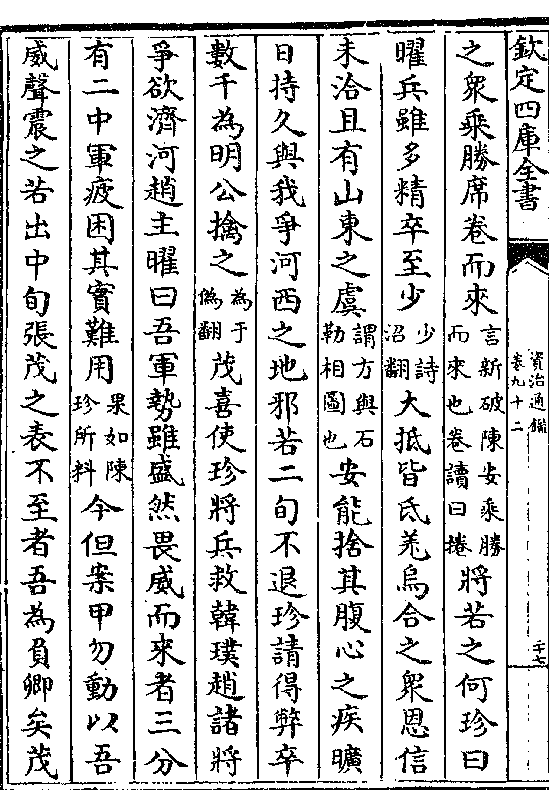 欽定四庫全書
資治通鑑
卷九十二
二十七
之衆乘勝席卷而來言新破陳安乘勝而來也卷讀曰捲將若之何珍曰
曜兵雖多精卒至少少詩沼翻大抵皆氐羌烏合之衆恩信
未洽且有山東之虞謂方與石勒相圖也安能捨其腹心之疾曠
日持久與我爭河西之地邪若二旬不退珍請得弊卒
數千為明公擒之為于偽翻茂喜使珍將兵救韓璞趙諸將
爭欲濟河趙主曜曰吾軍勢雖盛然畏威而來者三分
有二中軍疲困其實難用果如陳珍所料今但案甲勿動以吾
威聲震之若出中旬張茂之表不至者吾為負卿矣茂